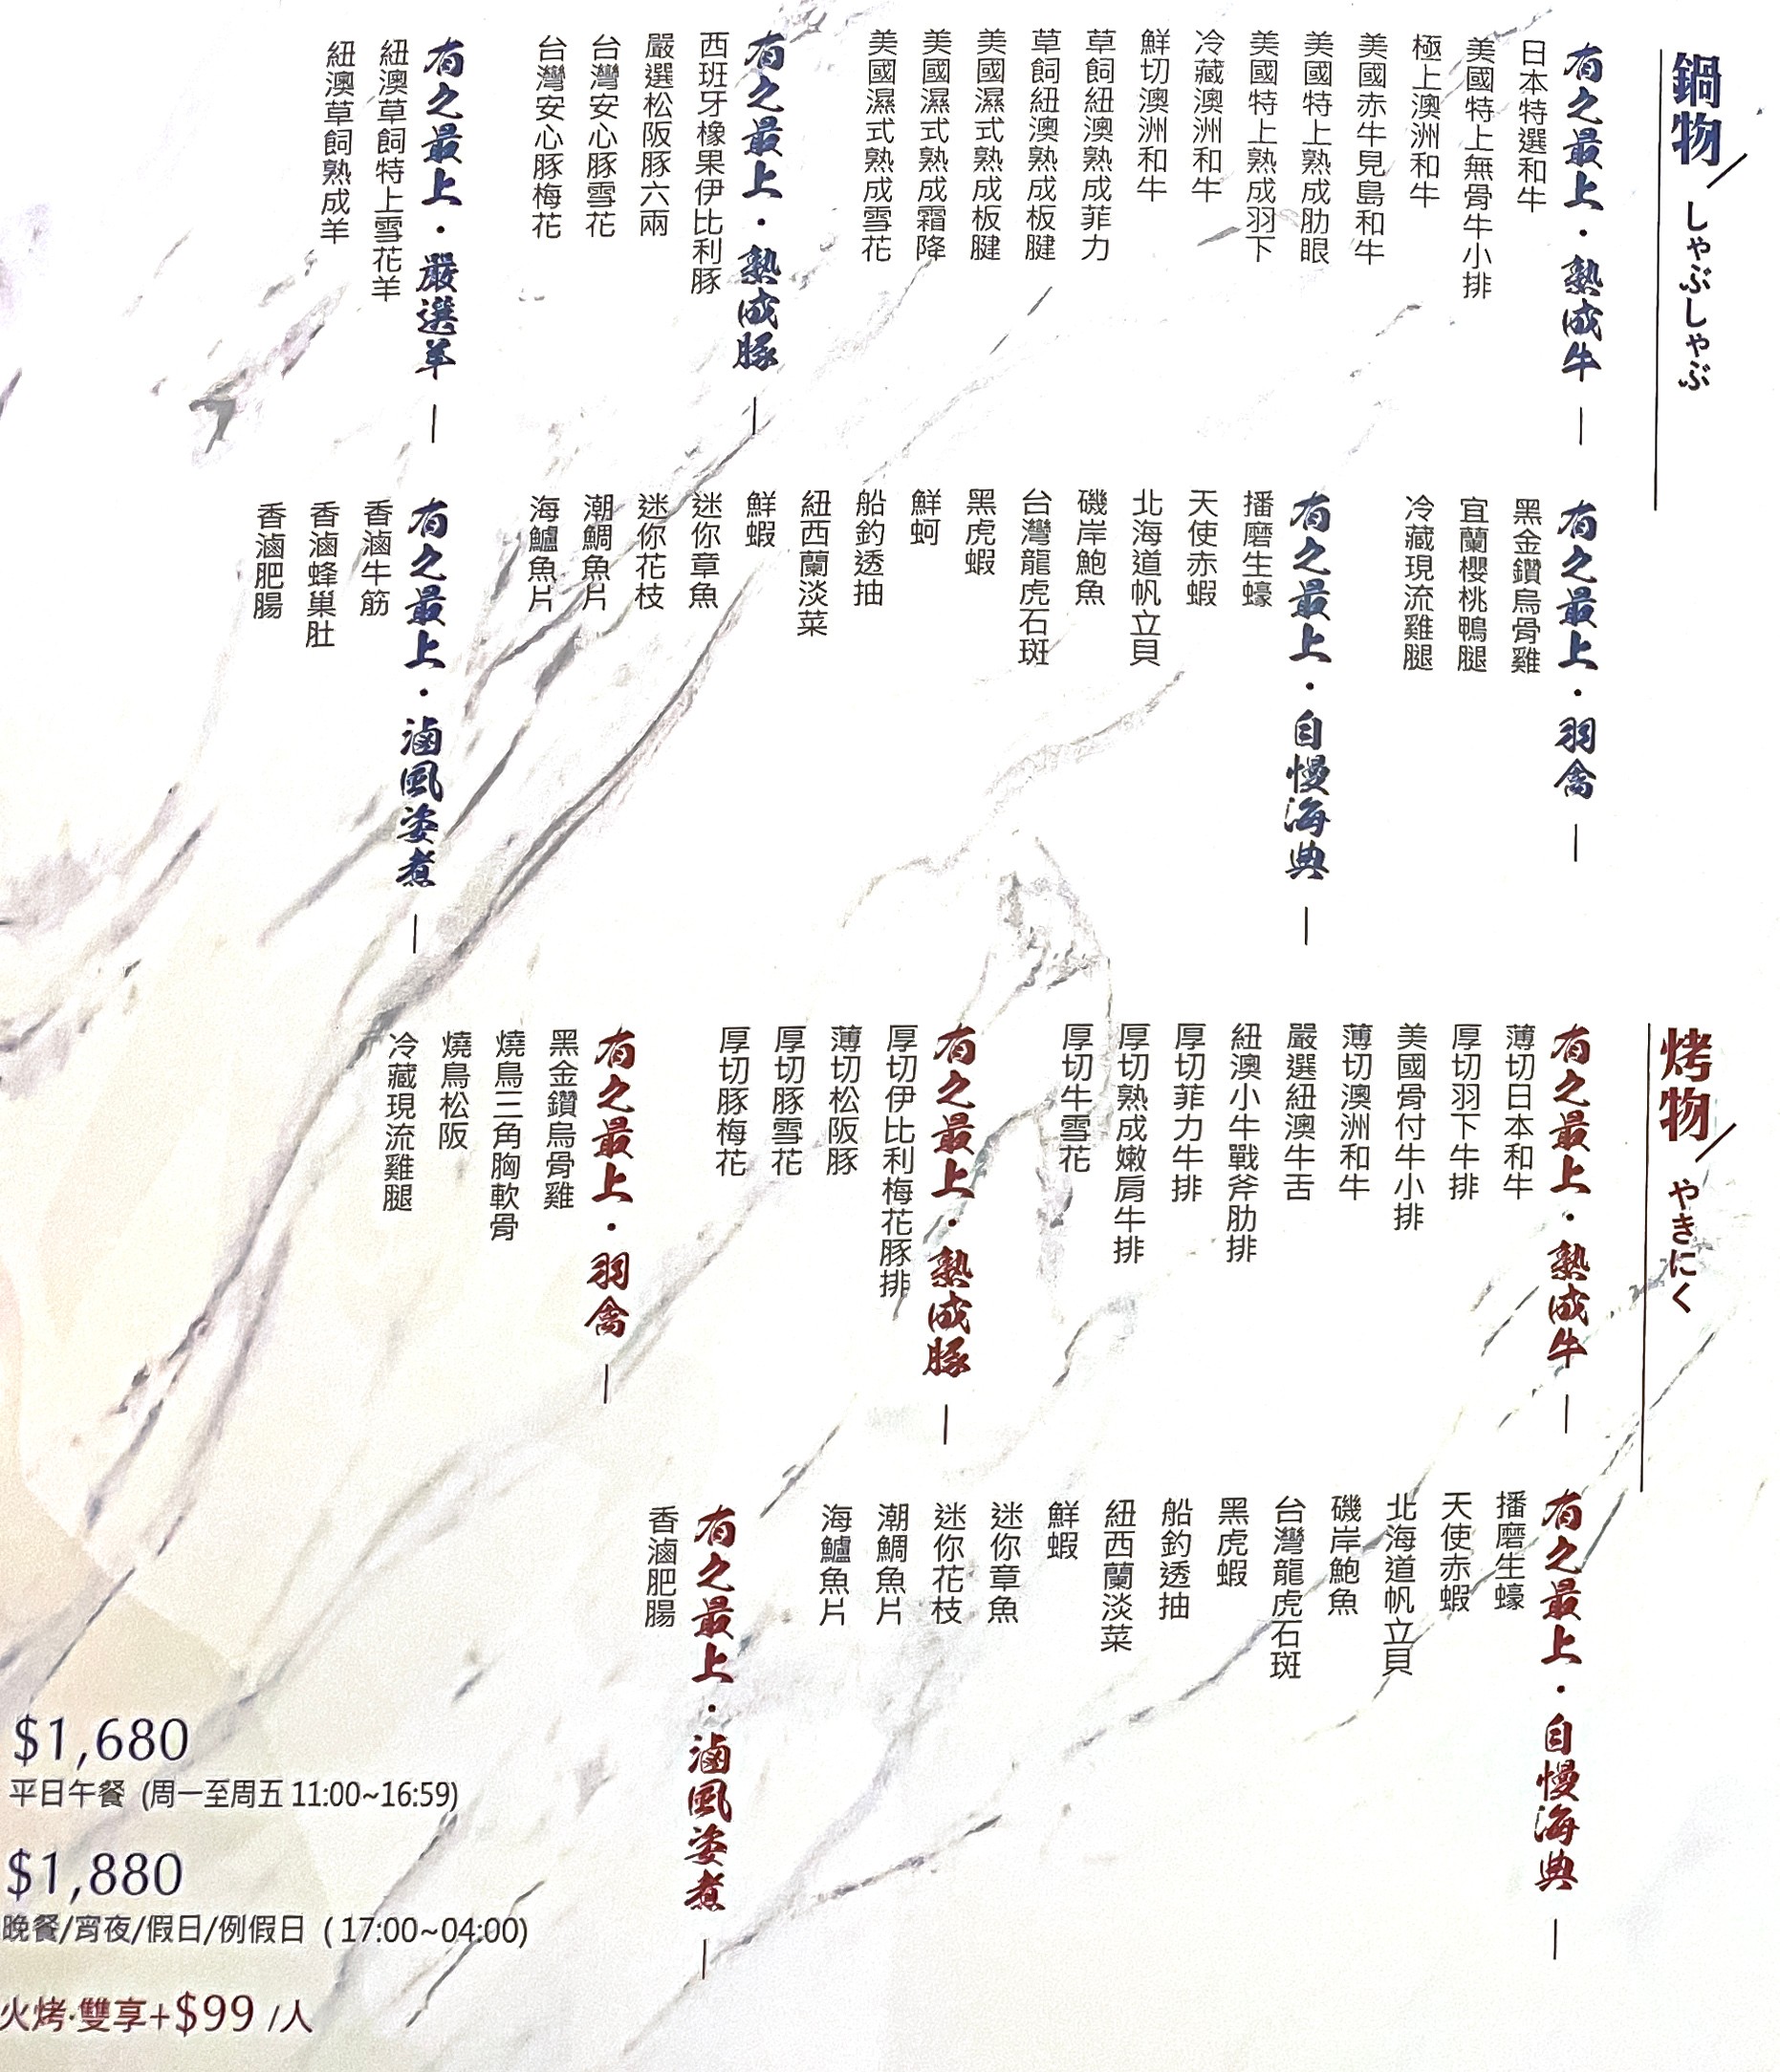 鍋物／しゃぶしゃぶ
有之最上・熟成牛
日本特選和牛
美國特上無骨牛小排
極上澳洲和牛
美國赤牛見島和牛
美國特上熟成肋眼
美國特上熟成羽下
冷藏澳洲和牛
鮮切澳洲和牛
草飼紐澳熟成菲力
草飼紐澳熟成板腱
美國濕式熟成板腱
美國濕式熟成霜降
美國濕式熟成雪花
有之最上・熟成豚
西班牙橡果伊比利豚
嚴選松阪豚六兩
台灣安心豚雪花
台灣安心豚梅花
有之最上・嚴選羊
紐澳草飼特上雪花羊
紐澳草飼熟成羊
有之最上・羽禽
黑金鑽烏骨雞
宜蘭櫻桃鴨腿
冷藏現流雞腿
有之最上・自慢海典
播磨生蠔
天使赤蝦
北海道帆立貝
磯岸鮑魚
台灣龍虎石斑
黑虎蝦
鮮蚵
船釣透抽
紐西蘭淡菜
鮮蝦
迷你章魚
迷你花枝
潮鯛魚片
海鱸魚片
有之最上・滷風姿煮
香滷牛筋
香滷蜂巢肚
香滷肥腸
烤物／やきにく
有之最上・熟成牛
薄切日本和牛
厚切羽下牛排
美國骨付牛小排
薄切澳洲和牛
嚴選紐澳牛舌
紐澳小牛戰斧肋排
厚切菲力牛排
厚切熟成嫩肩牛排
厚切牛雪花
有之最上・熟成豚
厚切伊比利梅花豚排
薄切松阪豚
厚切豚雪花
厚切豚梅花
有之最上・羽禽
黑金鑽烏骨雞
燒鳥三角胸軟骨
燒鳥松阪
冷藏現流雞腿
有之最上・自慢海典
播磨生蠔
天使赤蝦
北海道帆立貝
磯岸鮑魚
台灣龍虎石斑
黑虎蝦
船釣透抽
紐西蘭淡菜
鮮蝦
迷你章魚
迷你花枝
潮鯛魚片
海鱸魚片
有之最上・滷風姿煮
香滷肥腸
$1,680
平日午餐 (周一至周五 11:00~16:59)
$1,880
晚餐/宵夜/假日/例假日 ( 17:00~04:00)
火烤·雙享+$99 /人